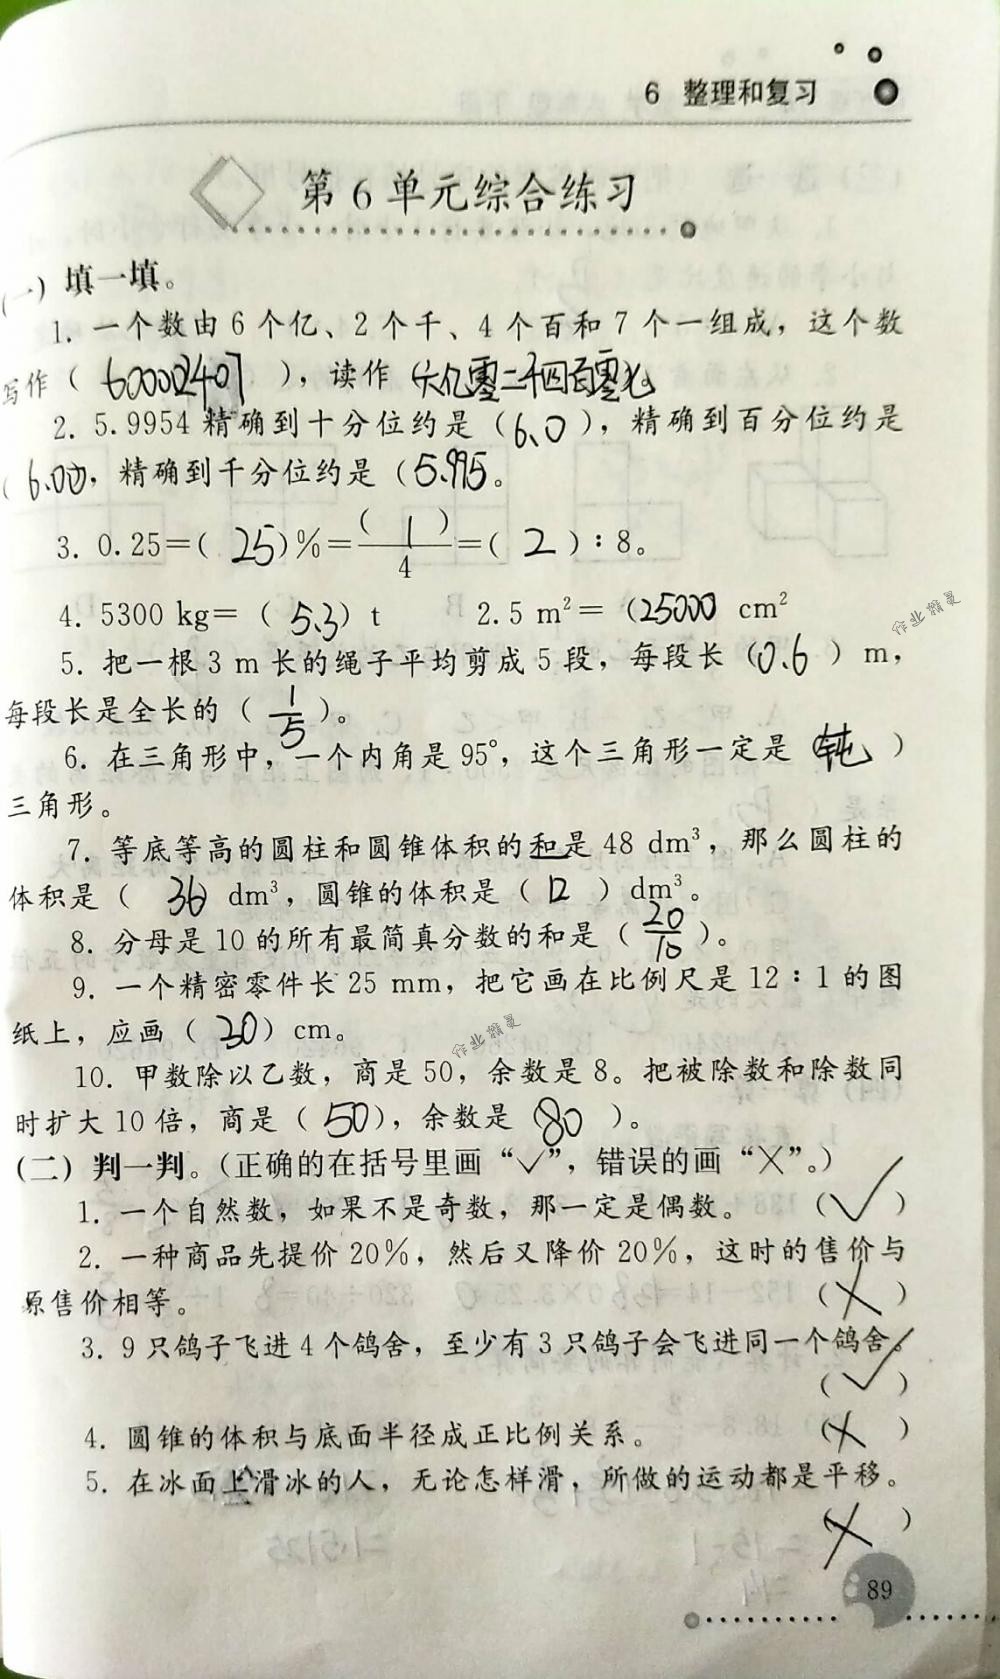 6 整理和复习
第6单元综合练习
(一) 填一填。
1. 一个数由6个亿、2个千、4个百和7个一组成，这个数
写作（ 600002407 ），读作（六亿零二千四百零七
2. 5.9954 精确到十分位约是（6.0），精确到百分位约是
（6.00），精确到千分位约是（5.995。
3. 0.25=( 25 )%=( 1 )/4=( 2 )∶8。
4. 5300 kg=（5.3）t 2.5 m²=（25000 cm²
5. 把一根3 m长的绳子平均剪成5段，每段长（0.6 ）m，
每段长是全长的（ 1/5 ）。
6. 在三角形中，一个内角是95°，这个三角形一定是（钝 ）
三角形。
7. 等底等高的圆柱和圆锥体积的和是48 dm³，那么圆柱的
体积是（ 36）dm³，圆锥的体积是（ 12 ）dm³。
8. 分母是10的所有最简真分数的和是（ 20/10 ）。
9. 一个精密零件长25 mm，把它画在比例尺是12∶1的图
纸上，应画（ 30）cm。
10. 甲数除以乙数，商是50，余数是8。把被除数和除数同
时扩大10倍，商是（ 50），余数是（80 ）。
(二) 判一判。（正确的在括号里画“√”，错误的画“×”。）
1. 一个自然数，如果不是奇数，那一定是偶数。 （√）
2. 一种商品先提价20%，然后又降价20%，这时的售价与
原售价相等。 （×）
3. 9只鸽子飞进4个鸽舍，至少有3只鸽子会飞进同一个鸽舍。
（√）
4. 圆锥的体积与底面半径成正比例关系。 （×）
5. 在冰面上滑冰的人，无论怎样滑，所做的运动都是平移。
（×）
89
作业精灵
作业精灵